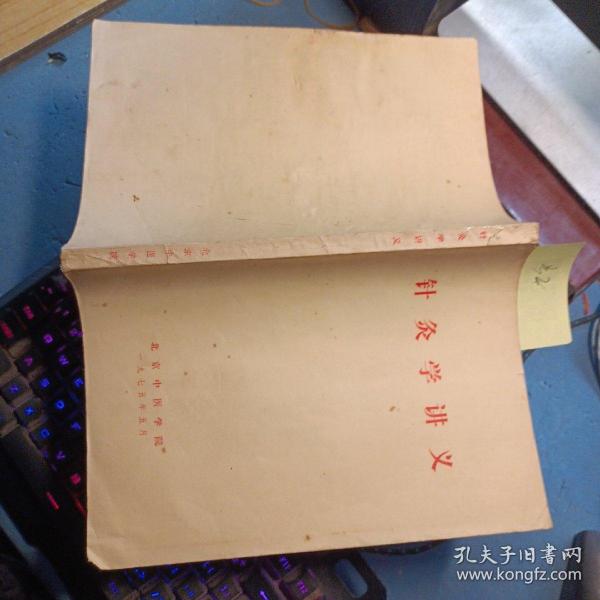 针灸学讲义
北京中医学院
一九七五年五月
针灸学讲义
北京中医学院
孔夫子旧书网
www.kongfz.com